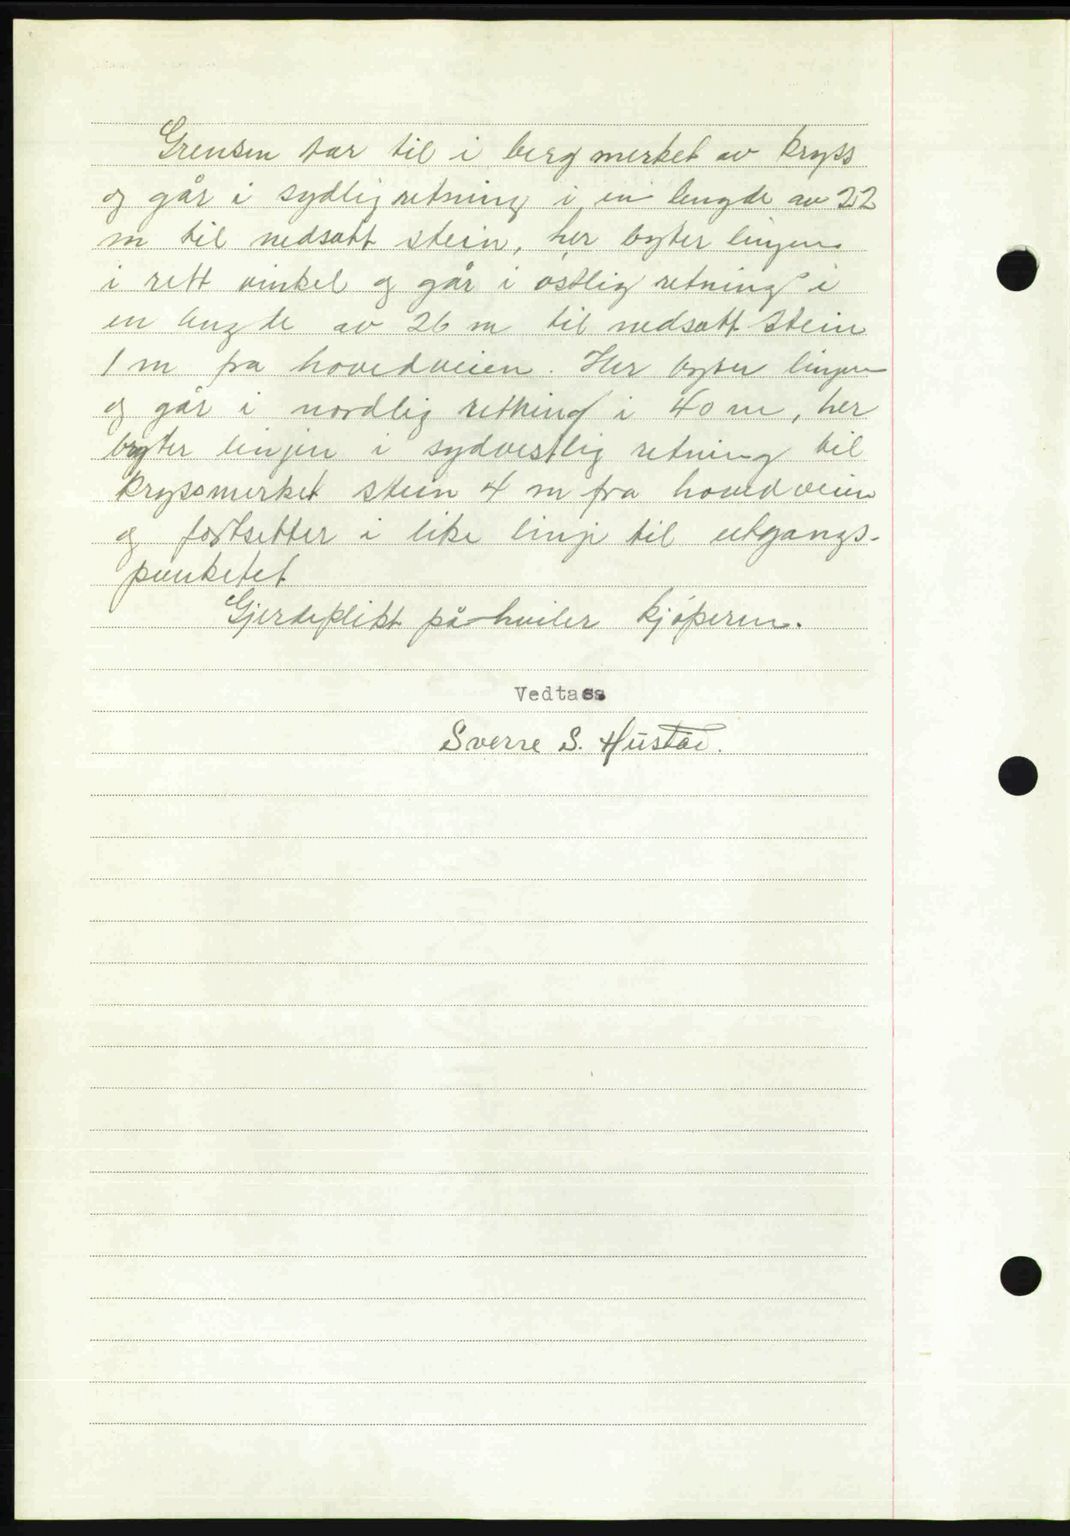 Grensen tar til i berg merket av kryss
og går i sydlig retning i en lengde av 22
m til nedsatt stein, her bryter linjen
i rett vinkel og går i østlig retning i
en lengde av 26 m til nedsatt stein
1 m fra hovedveien. Her bryter linjen
og går i nordlig retning i 40 m, her
bryter linjen i sydvestlig retning til
kryssmerket stein 4 m fra hovedveien
og fortsetter i like linje til utgangs-
punktet
Gjerdeplikt på hviler kjøperen.
Vedtass
Sverre S. Hustad.